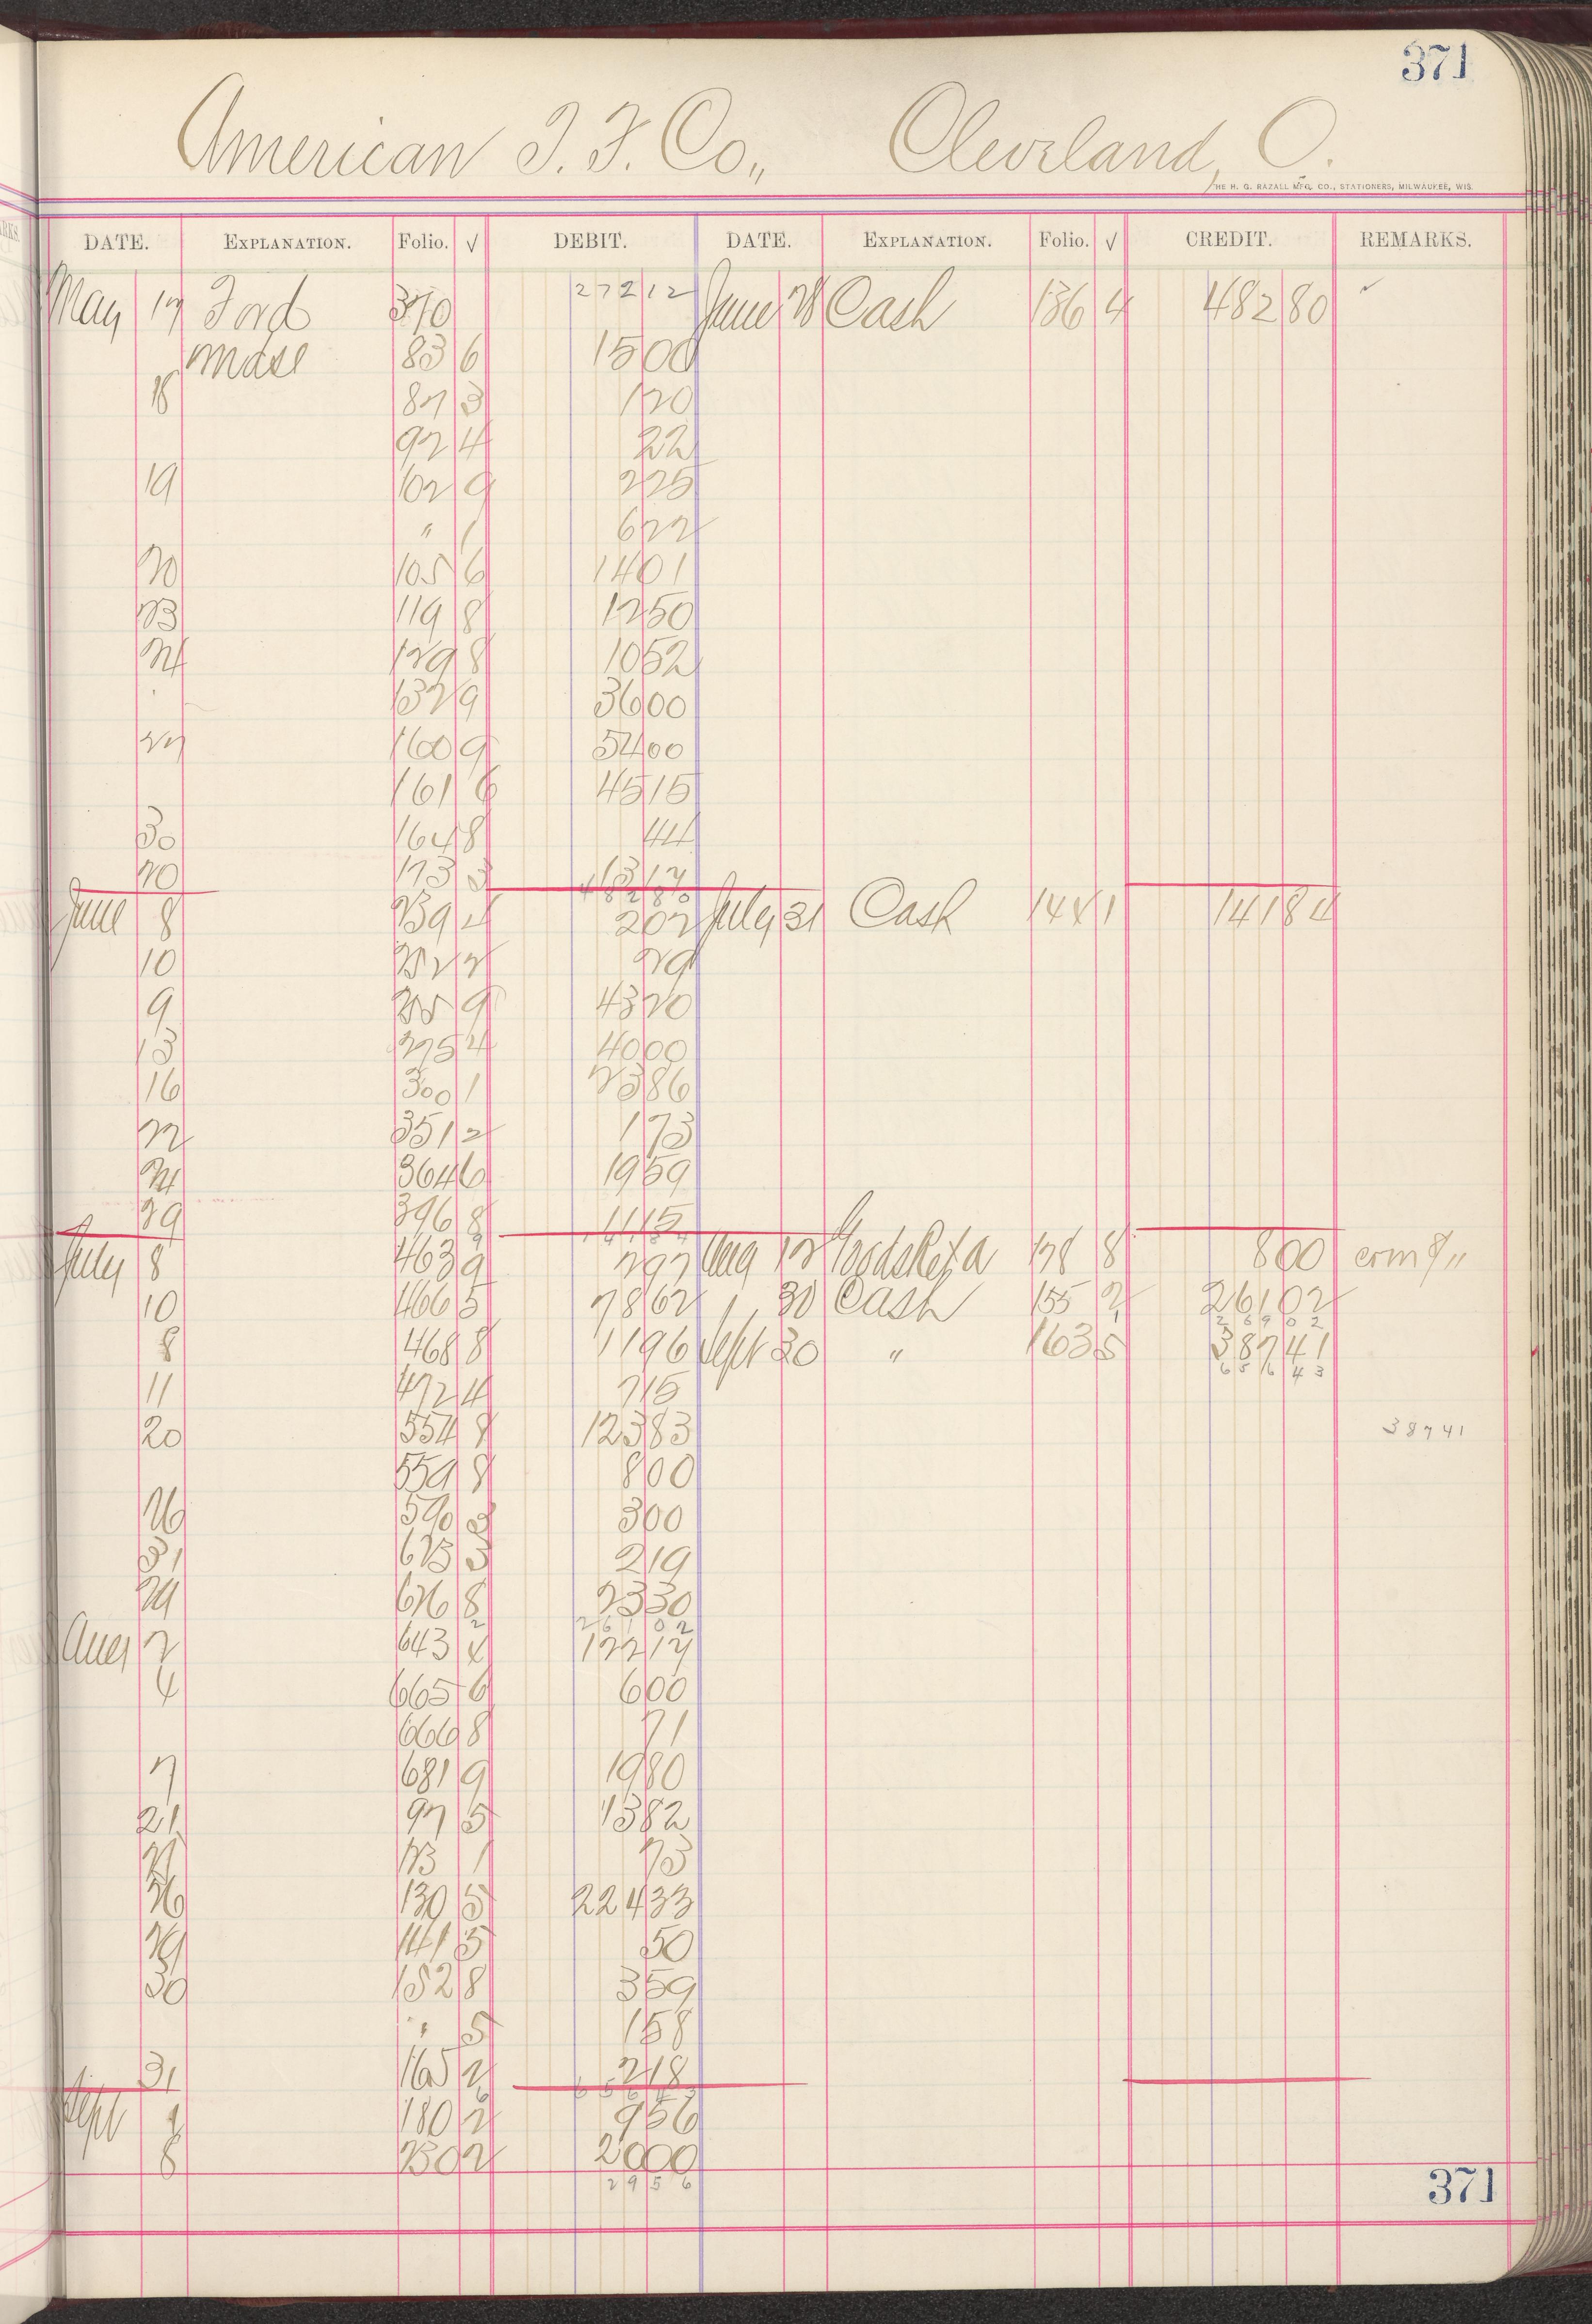 371
American T. F. Co., Cleveland, O.
THE H. G. RAZALL MFG. CO., STATIONERS, MILWAUKEE, WIS.
DATE. EXPLANATION. Folio. √ DEBIT. DATE. EXPLANATION. Folio. √ CREDIT. REMARKS.
May 17 Ford 370 272 12 June 28 Cash 136 4 482 80 ✓
Mdse 83 6 15 00
18 87 3 1 20
92 4 22
19 102 9 2 25
" 1 6 22
20 105 6 14 01
23 119 8 12 50
24 129 8 10 52
132 9 36 00
27 160 9 54 00
161 6 45 15
30 164 8 44
20 173 3 13 17
482 80
June 8 239 4 2 02 July 31 Cash 144 1 141 84
10 252 2 29
9 255 9 43 20
13 275 4 40 00
16 300 1 23 86
22 351 2 1 73
24 364 6 19 59
29 396 8 11 15
July 8 463 9 2 97 Aug 12 Goods Ret'd 178 8 8 00
10 466 5 78 62 " 30 Cash 155 2 261 02
269 02
8 468 8 11 96 Sept 30 " 163 5 387 41
656 43
11 472 4 7 15
20 554 8 123 83 387 41
559 8 8 00
26 590 3 3 00
31 623 3 2 19
29 626 8 23 30
261 02
Aug 2 643 4 122 17
4 665 6 6 00
666 8 71
7 681 9 19 80
21 97 5 13 82
123 1 73
26 130 5 224 33
29 141 5 50
30 152 8 3 59
" 5 1 58
31 165 2 2 18
656 43
Sept 1 180 2 9 56
8 230 2 20 00
29 56
371